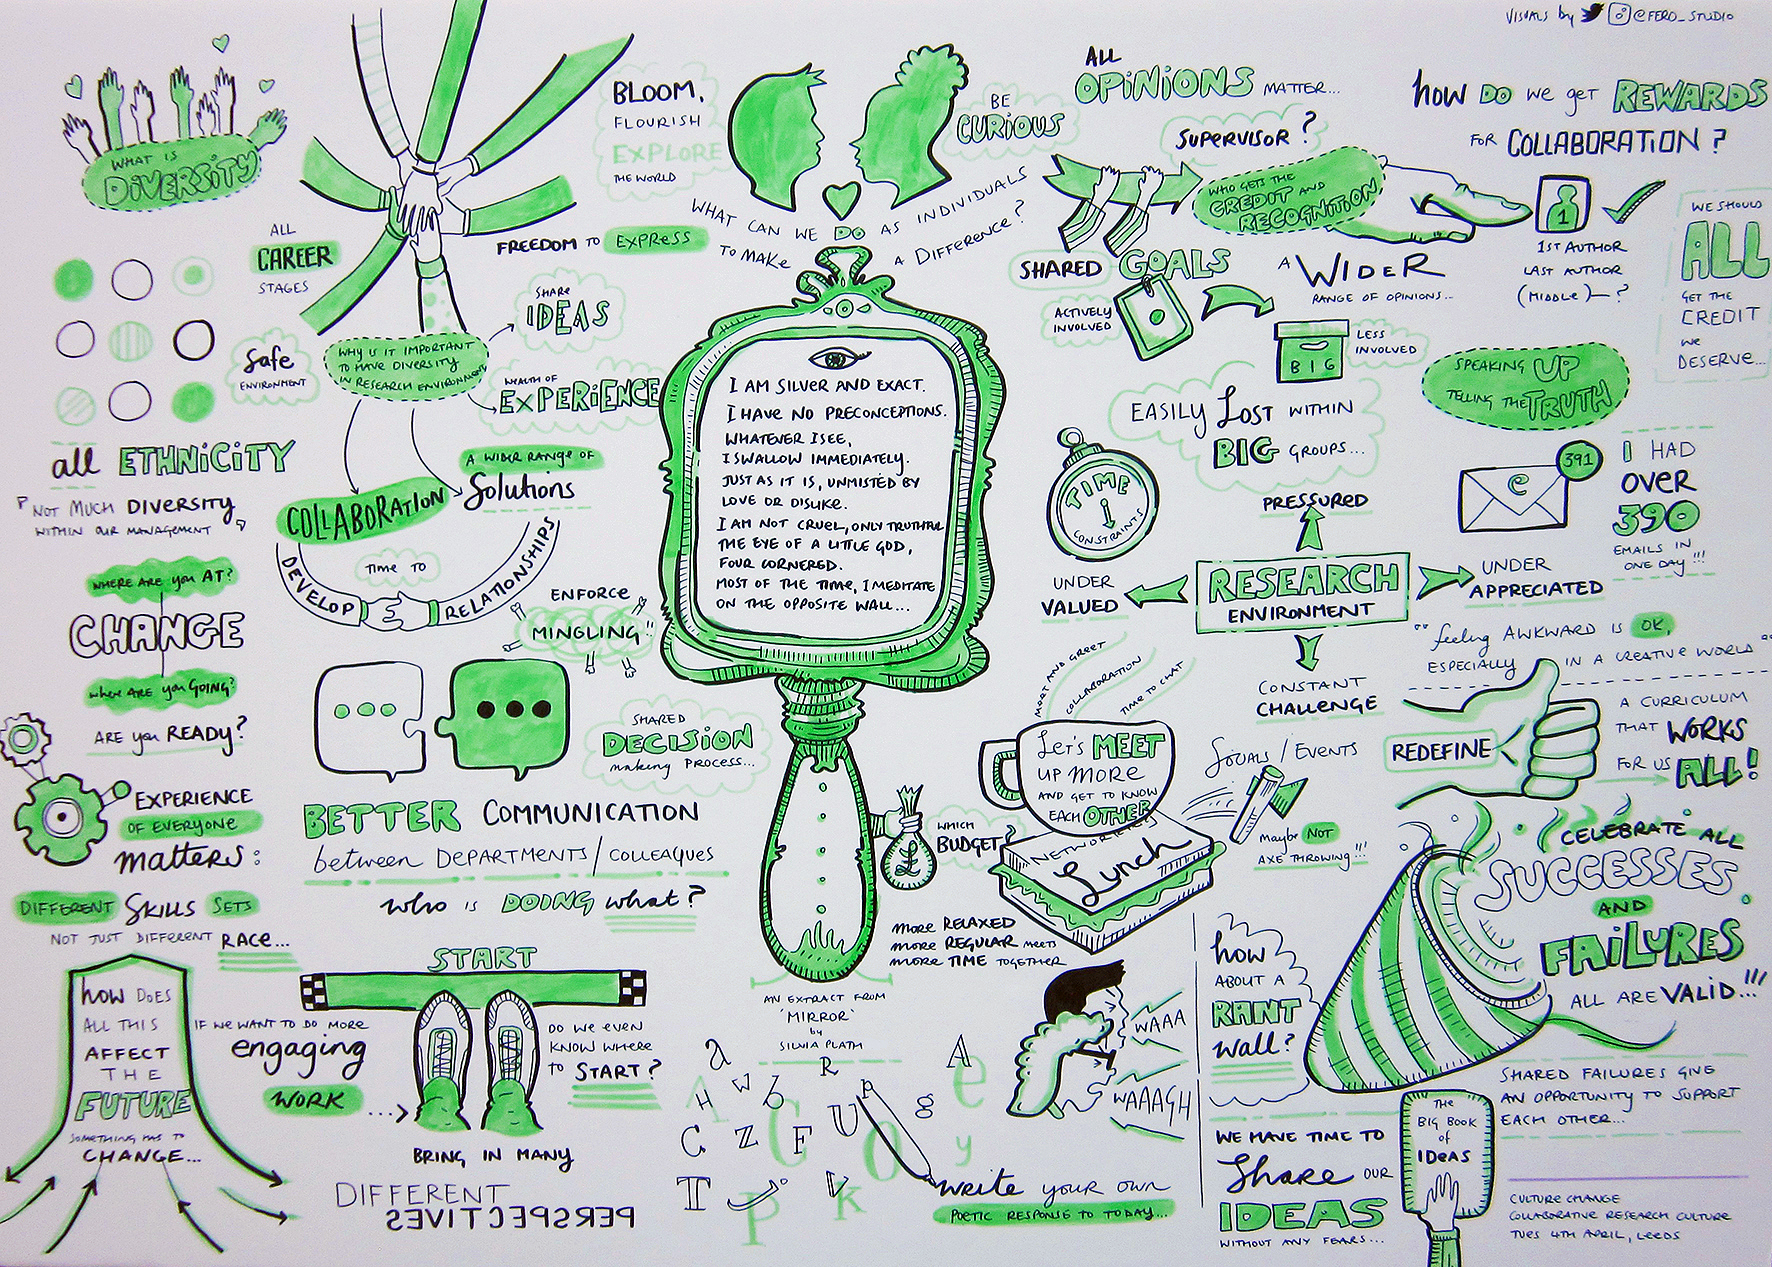 VISUALS by @FERO_STUDIO
WHAT IS
DIVERSITY
ALL
CAREER
STAGES
Safe
ENVIRONMENT
all ETHNICITY
"NOT MUCH DIVERSITY
WITHIN OUR MANAGEMENT"
WHERE ARE you AT?
CHANGE
where ARE you GOING?
ARE you READY?
EXPERIENCE
OF EVERYONE
matters:
DIFFERENT SKILLS SETS
NOT JUST DIFFERENT RACE...
how DOES
ALL THIS
AFFECT
THE
FUTURE
SOMETHING HAS TO
CHANGE...
BLOOM,
FLOURISH
EXPLORE
THE WORLD
FREEDOM TO EXPRESS
WHY IS IT IMPORTANT
TO HAVE DIVERSITY
IN RESEARCH ENVIRONMENT
SHARE
IDEAS
WEALTH OF
EXPERIENCE
A WIDER RANGE OF
Solutions
COLLABORATION
TIME TO
DEVELOP RELATIONSHIPS
ENFORCE
MINGLING!!
SHARED
DECISION
making PROCESS...
BETTER COMMUNICATION
between DEPARTMENTS/COLLEAGUES
who IS DOING what?
START
IF WE WANT TO DO MORE
engaging
WORK ...
DO WE EVEN
KNOW WHERE
to START?
BRING IN MANY
DIFFERENT
PERSPECTIVES
BE
CURIOUS
WHAT CAN WE DO AS INDIVIDUALS
TO MAKE A DIFFERENCE?
I AM SILVER AND EXACT.
I HAVE NO PRECONCEPTIONS.
WHATEVER I SEE,
I SWALLOW IMMEDIATELY.
JUST AS IT IS, UNMISTED BY
LOVE OR DISLIKE.
I AM NOT CRUEL, ONLY TRUTHFUL
THE EYE OF A LITTLE GOD,
FOUR CORNERED.
MOST OF THE TIME, I MEDITATE
ON THE OPPOSITE WALL...
£
WHICH
BUDGET?
AN EXTRACT FROM
'MIRROR'
by
SILVIA PLATH
a R A e
A w b
H U g
C Z C F O y
T P V k
write your own
POETIC RESPONSE TO TODAY...
ALL
OPINIONS MATTER...
SUPERVISOR?
WHO GETS THE
CREDIT AND
RECOGNITION
how DO we get REWARDS
FOR COLLABORATION?
1
1ST AUTHOR
LAST AUTHOR
(MIDDLE) ?
WE SHOULD
ALL
GET THE
CREDIT
WE
DESERVE...
SHARED GOALS
ACTIVELY
INVOLVED
A WIDER
RANGE OF OPINIONS...
BIG
LESS
INVOLVED
EASILY Lost WITHIN
BIG GROUPS...
SPEAKING UP
TELLING THE TRUTH
TIME
CONSTRAINTS
e
391
I HAD
OVER
390
EMAILS IN
ONE DAY!!!
PRESSURED
UNDER
VALUED
RESEARCH
ENVIRONMENT
UNDER
APPRECIATED
CONSTANT
CHALLENGE
"feeling AWKWARD IS OK,
ESPECIALLY IN A CREATIVE WORLD"
REDEFINE
A CURRICULUM
THAT WORKS
FOR US ALL!
MEET AND GREET
COLLABORATION
TIME TO CHAT
Let's MEET
UP more
AND GET TO KNOW
EACH OTHER
NETWORKING
Lunch
SOCIALS/EVENTS
Maybe NOT
AXE THROWING!!!
more RELAXED
more REGULAR MEETS
more TIME TOGETHER
WAAA
WAAAGH
how
ABOUT A
RANT
wall?
CELEBRATE ALL
SUCCESSES
AND
FAILURES
ALL ARE VALID...!!!
SHARED FAILURES GIVE
AN OPPORTUNITY TO SUPPORT
EACH OTHER...
WE HAVE TIME TO
Share OUR
IDEAS
WITHOUT ANY FEARS...
THE
BIG BOOK
of
IDEAS
CULTURE CHANGE
COLLABORATIVE RESEARCH CULTURE
TUES 4TH APRIL, LEEDS